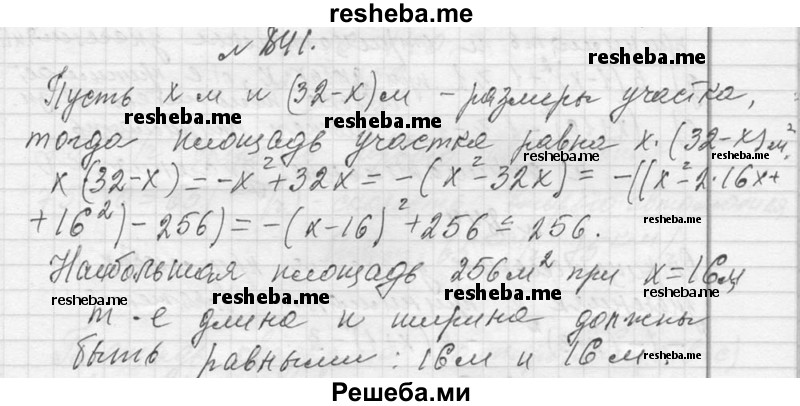 resheba.me
№ 841.
resheba.me
Пусть x м и (32-x) м - размеры участка,
resheba.me
resheba.me
тогда площадь участка равна x·(32-x) м².
resheba.me
x(32-x) = -x²+32x = -(x²-32x) = -((x²-2·16x+
+16²)-256) = -(x-16)²+256 ≤ 256.
resheba.me
Наибольшая площадь 256 м² при x=16 м,
resheba.me
resheba.me
resheba.me
т-е длина и ширина должны
быть равными: 16 м и 16 м.
resheba.me
resheba.me
Решеба.ми